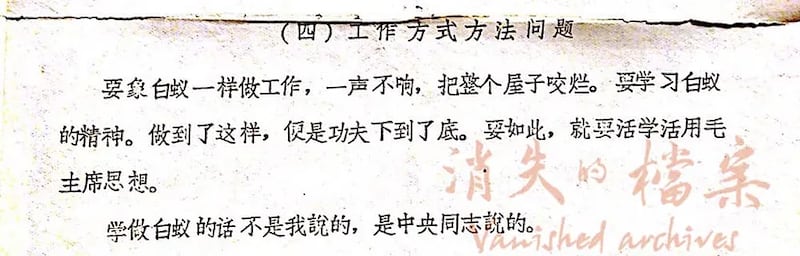 (四)工作方式方法问题
要象白蚁一样做工作，一声不响，把整个屋子咬烂。要学习白蚁
的精神。做到了这样，便是功夫下到了底。要如此，就要活学活用毛
主席思想。
学做白蚁的话不是我說的，是中央同志說的。
消失的檔案
Vanished archives